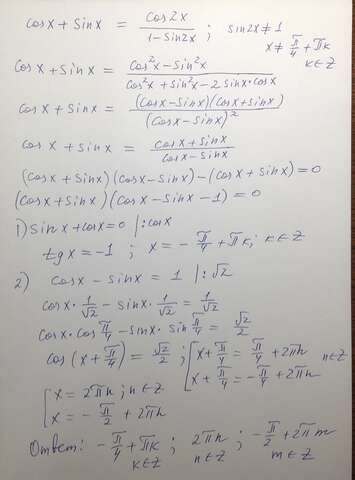 cosx + sinx = cos2x / (1 - sin2x) ; sin2x ≠ 1
x ≠ π/4 + πk
k ∈ Z
cosx + sinx = (cos²x - sin²x) / (cos²x + sin²x - 2sinx·cosx)
cosx + sinx = (cosx - sinx)(cosx + sinx) / (cosx - sinx)²
cosx + sinx = (cosx + sinx) / (cosx - sinx)
(cosx + sinx)(cosx - sinx) - (cosx + sinx) = 0
(cosx + sinx)(cosx - sinx - 1) = 0
1) sinx + cosx = 0 |: cosx
tgx = -1 ; x = - π/4 + πk; k ∈ Z
2) cosx - sinx = 1 |: √2
cosx · 1/√2 - sinx · 1/√2 = 1/√2
cosx · cos π/4 - sinx · sin π/4 = √2/2
cos(x + π/4) = √2/2 ; [x + π/4 = π/4 + 2πn
x + π/4 = - π/4 + 2πn n ∈ Z
[x = 2πn; n ∈ Z
x = - π/2 + 2πn
Ответ: - π/4 + πk ; 2πn ; - π/2 + 2πm
k ∈ Z n ∈ Z m ∈ Z